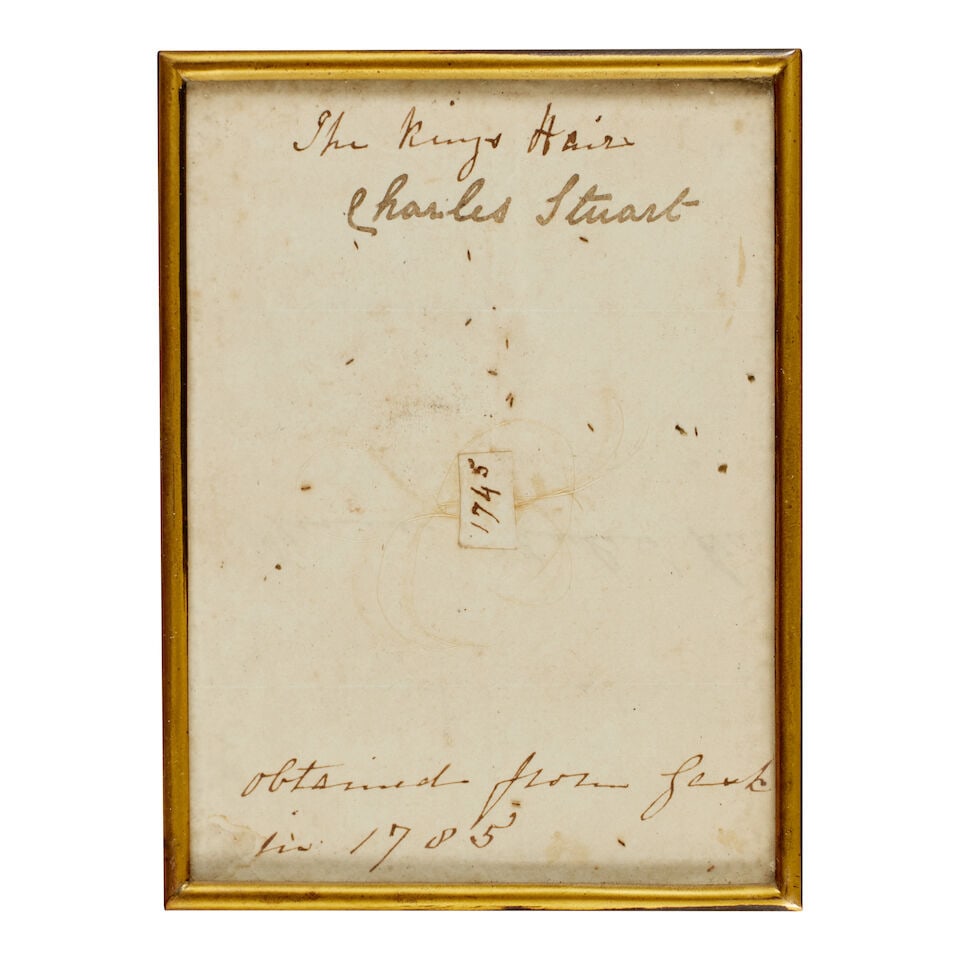 The Kings Hair
Charles Stuart
1745
obtained from Gask
in 1785